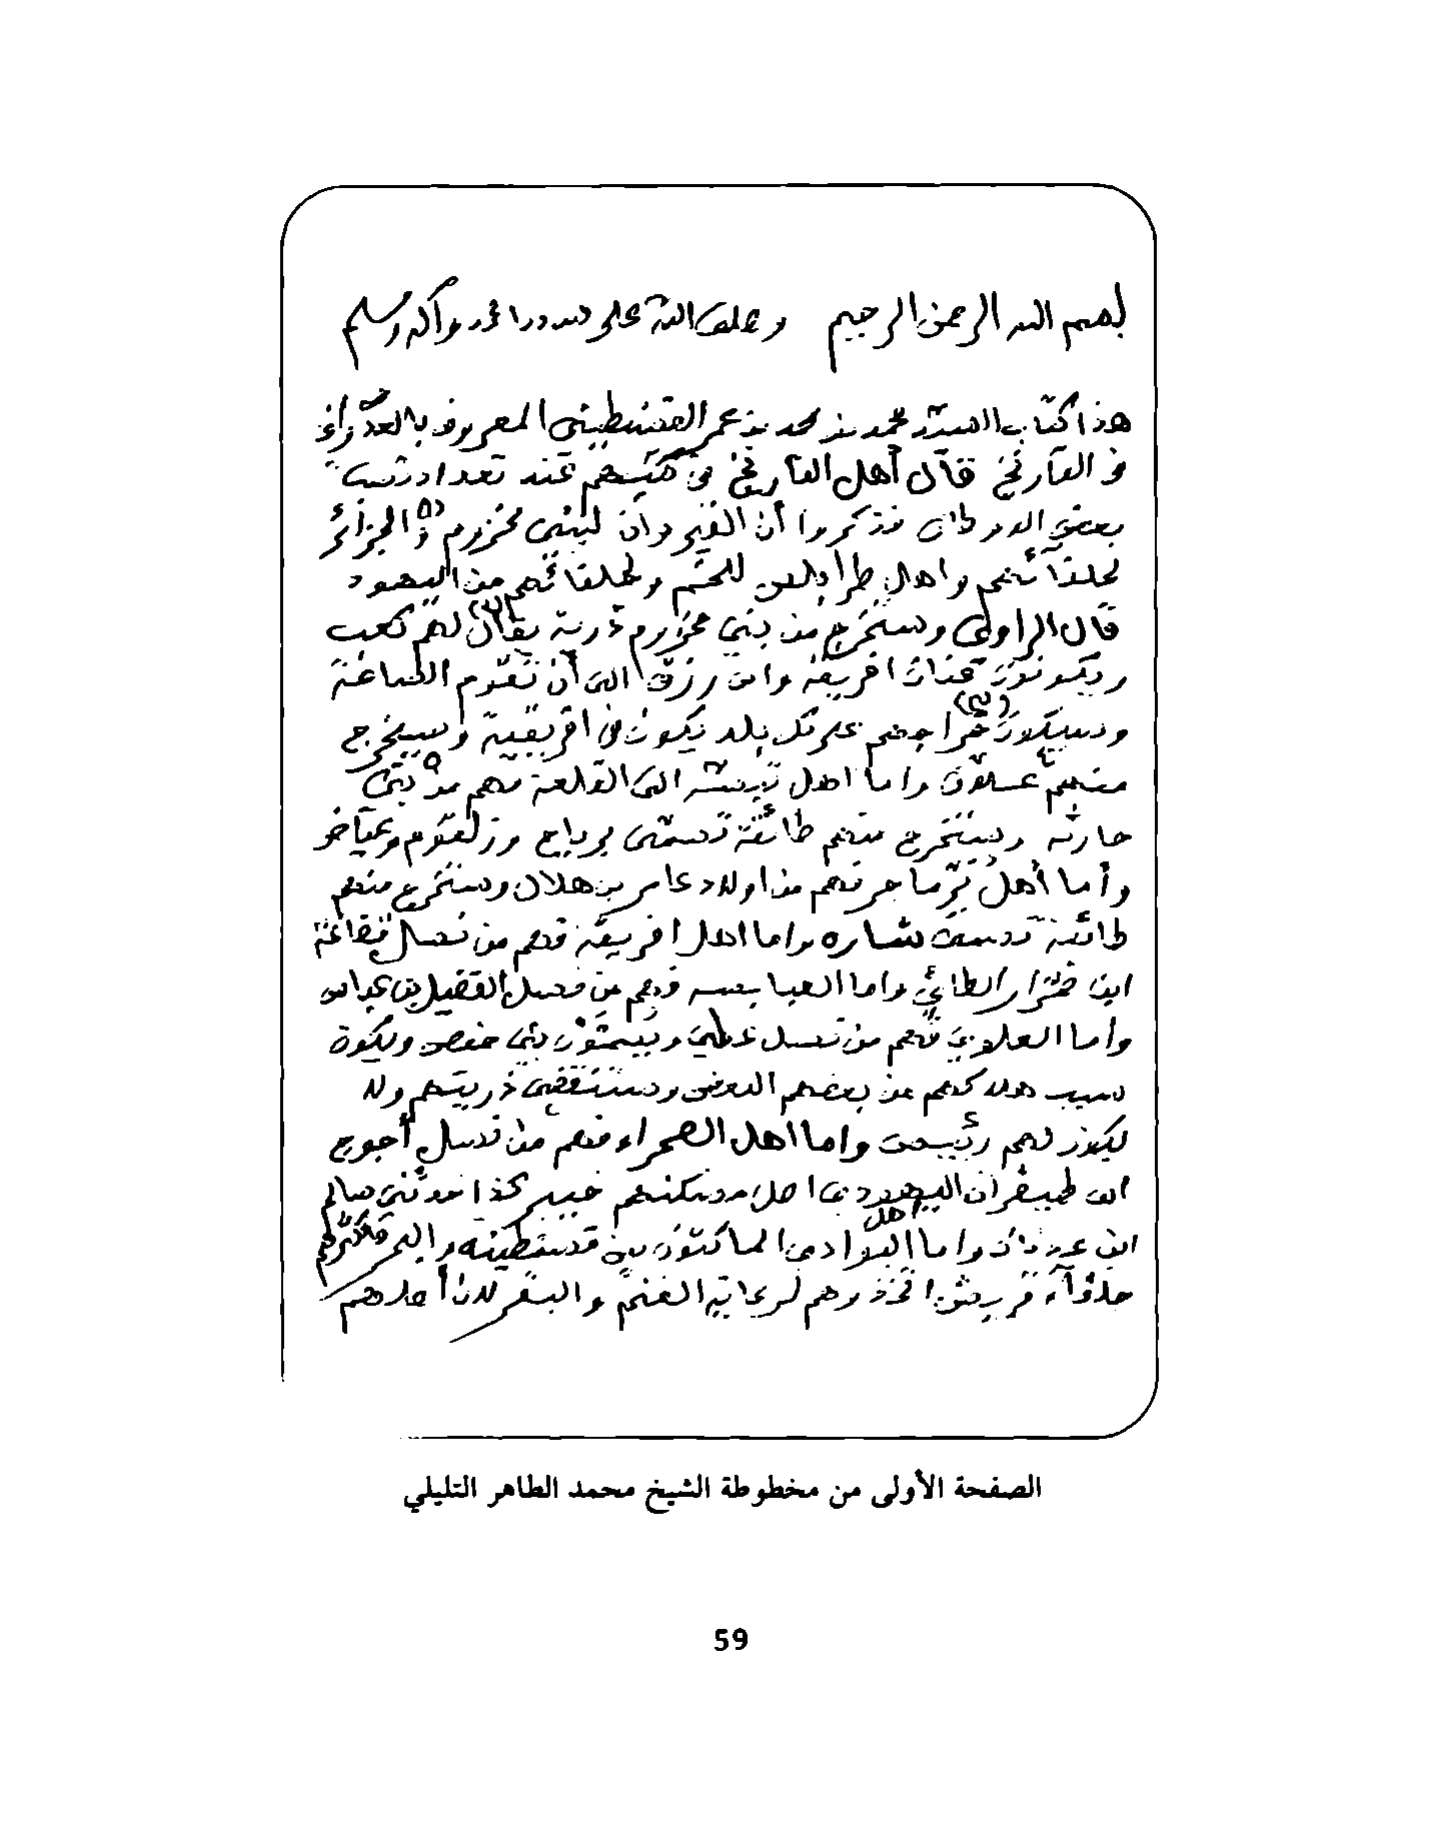 بسم الله الرحمن الرحيم وصلى الله على سيدنا محمد وآله وسلم
هذا كتاب السيد محمد بن محمد بن عمر القسنطيني المعروف بالعدواني
في التاريخ قال أهل التاريخ في كتبهم عند تعداد نسب
بعض الاوطان فذكروا أن القيروان لبني مخزوم والجزائر
لحلفائهم واهل طرابلس للحشم ولحلفائهم من اليهود
قال الراوي وستخرج من بني مخزوم ذرية يقال لهم كعب
ويكونون افريقة وابن رزق الى أن تقوم الساعة
وسيكون خراجهم على كل بلد يكون في افريقية وسيخرج
منهم واما اهل تبسة الى القلعة فهم من بني
حارثه وستخرج منهم طائفة تسمى برباح وزلقوم
وأما أهل فهم من اولاد عامر بن هلال وستخرج منهم
طائفة تسمى شاره واما اهل افريقة فهم من نسل
ابن ضرار الطائي واما العبابسه فهم من نسل الفضيل بن عباس
واما العلاوي فهم من نسل علي ويسمون بني حفص ويكون
سبب هلاكهم من بعضهم البعض وستنقضي ذريتهم ولا
يكون لهم رئيس واما أهل الصحراء فمنهم من نسل أجوج
ابن اليهودي اصل مسكنهم خيبر كذا حدثني سالم
ابن عدنان واما اهل البوادي الماكثون بين قسنطينة والبحر فأكثرهم
حلفاء قريش اتخذوهم لرعاية الغنم والبقر لان أصلهم
الصفحة الأولى من مخطوطة الشيخ محمد الطاهر التليلي
59